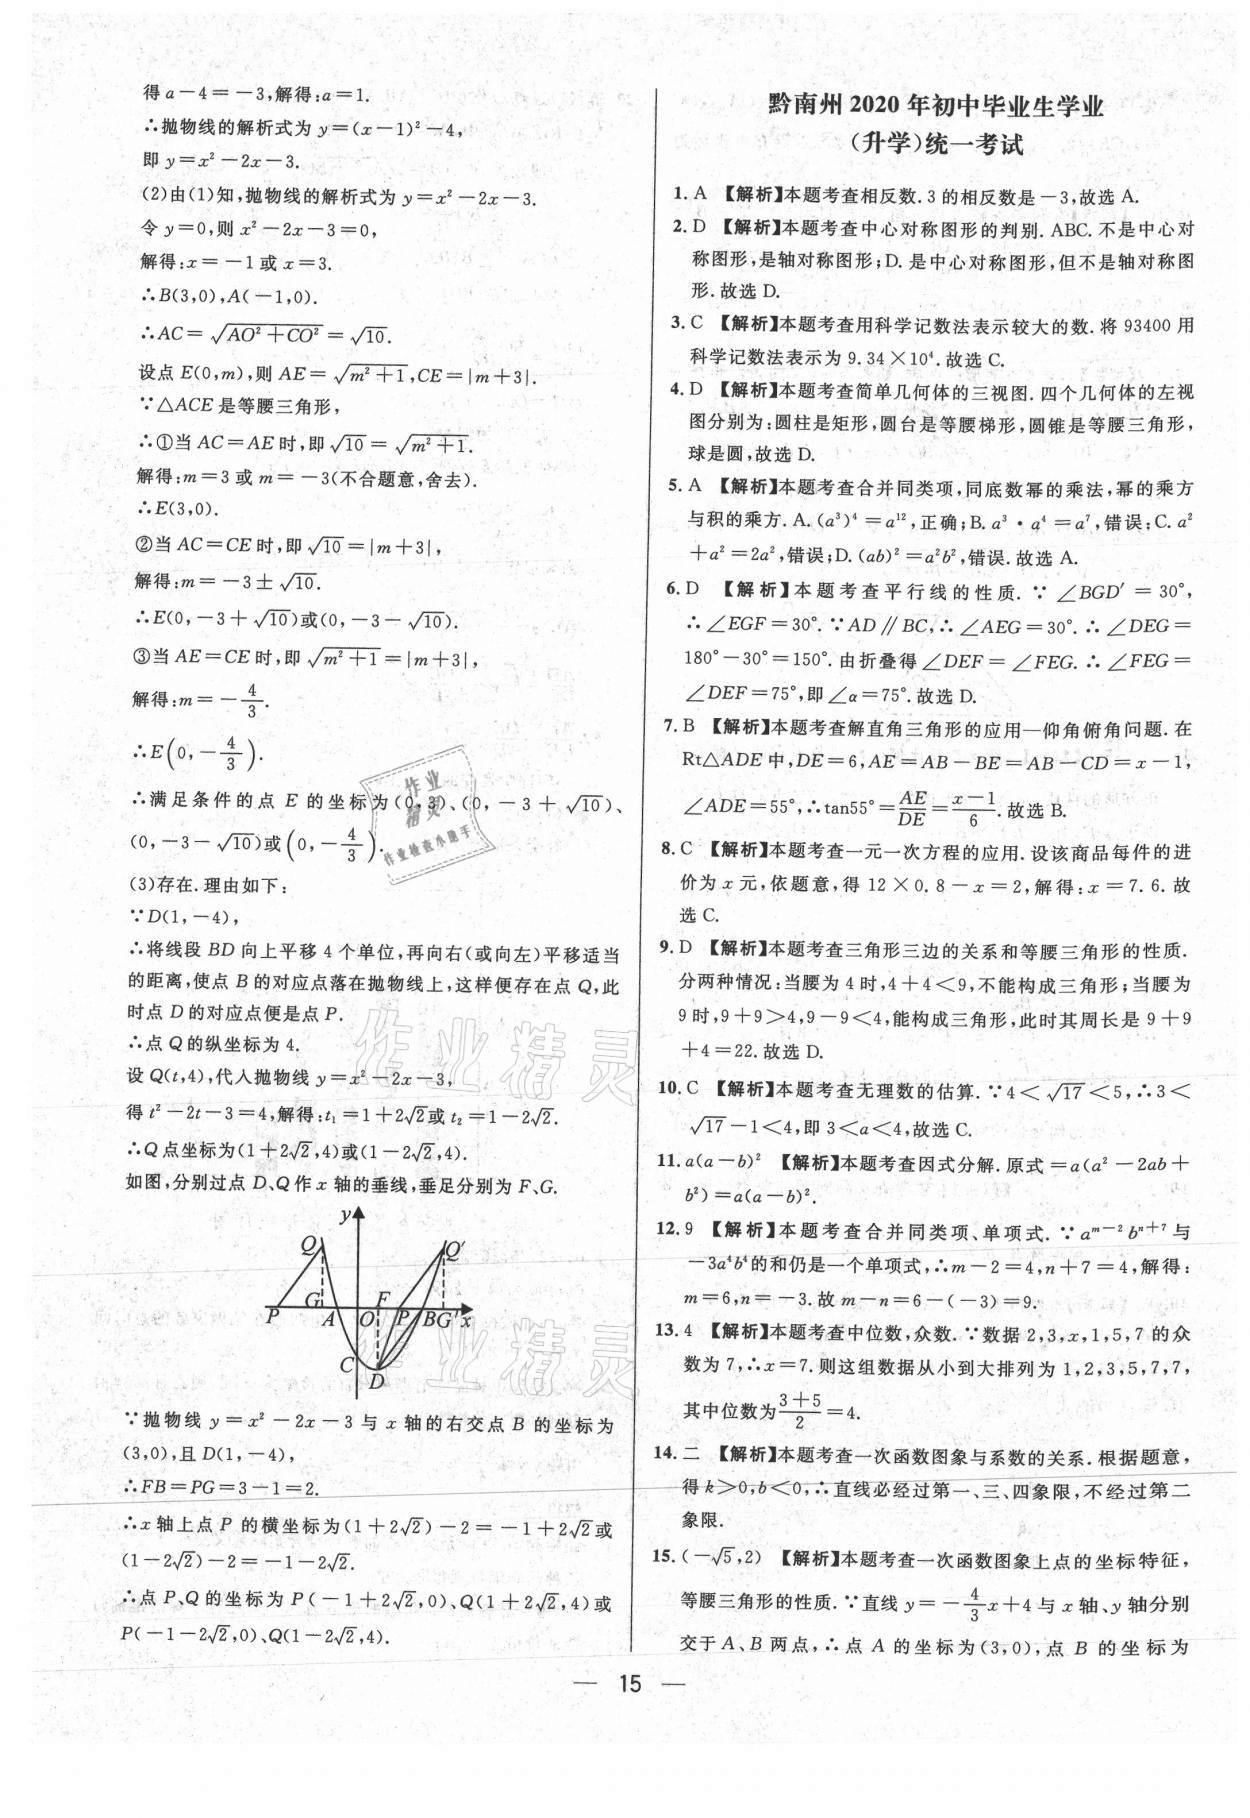 得a－4＝－3,解得:a＝1.
∴抛物线的解析式为y＝(x－1)²－4,
即y＝x²－2x－3.
(2)由(1)知,抛物线的解析式为y＝x²－2x－3.
令y＝0,则x²－2x－3＝0,
解得:x＝－1或x＝3.
∴B(3,0),A(－1,0).
∴AC＝√(AO²＋CO²)＝√10.
设点E(0,m),则AE＝√(m²＋1),CE＝|m＋3|.
∵△ACE是等腰三角形,
∴①当AC＝AE时,即√10＝√(m²＋1).
解得:m＝3或m＝－3(不合题意,舍去).
∴E(3,0).
②当AC＝CE时,即√10＝|m＋3|,
解得:m＝－3±√10.
∴E(0,－3＋√10)或(0,－3－√10).
③当AE＝CE时,即√(m²＋1)＝|m＋3|,
解得:m＝－4/3.
∴E(0,－4/3).
∴满足条件的点E的坐标为(0,3)、(0,－3＋√10)、
(0,－3－√10)或(0,－4/3).
(3)存在.理由如下:
∵D(1,－4),
∴将线段BD向上平移4个单位,再向右(或向左)平移适当
的距离,使点B的对应点落在抛物线上,这样便存在点Q,此
时点D的对应点便是点P.
∴点Q的纵坐标为4.
设Q(t,4),代人抛物线y＝x²－2x－3,
得t²－2t－3＝4,解得:t₁＝1＋2√2或t₂＝1－2√2.
∴Q点坐标为(1＋2√2,4)或(1－2√2,4).
如图,分别过点D、Q作x轴的垂线,垂足分别为F、G.
y
Q Q′
G F
P A O P B G′ x
C
D
∵抛物线y＝x²－2x－3与x轴的右交点B的坐标为
(3,0),且D(1,－4),
∴FB＝PG＝3－1＝2.
∴x轴上点P的横坐标为(1＋2√2)－2＝－1＋2√2或
(1－2√2)－2＝－1－2√2.
∴点P、Q的坐标为P(－1＋2√2,0)、Q(1＋2√2,4)或
P(－1－2√2,0)、Q(1－2√2,4).
黔南州2020年初中毕业生学业
(升学)统一考试
1. A 【解析】本题考查相反数.3的相反数是－3,故选A.
2. D 【解析】本题考查中心对称图形的判别.ABC.不是中心对
称图形,是轴对称图形;D.是中心对称图形,但不是轴对称图
形.故选D.
3. C 【解析】本题考查用科学记数法表示较大的数.将93400用
科学记数法表示为9.34×10⁴.故选C.
4. D 【解析】本题考查简单几何体的三视图.四个几何体的左视
图分别为:圆柱是矩形,圆台是等腰梯形,圆锥是等腰三角形,
球是圆,故选D.
5. A 【解析】本题考查合并同类项,同底数幂的乘法,幂的乘方
与积的乘方.A.(a³)⁴＝a¹²,正确;B.a³·a⁴＝a⁷,错误;C.a²
＋a²＝2a²,错误;D.(ab)²＝a²b²,错误.故选A.
6. D 【解析】本题考查平行线的性质.∵∠BGD′＝30°,
∴∠EGF＝30°.∵AD∥BC,∴∠AEG＝30°.∴∠DEG＝
180°－30°＝150°.由折叠得∠DEF＝∠FEG.∴∠FEG＝
∠DEF＝75°,即∠α＝75°.故选D.
7. B 【解析】本题考查解直角三角形的应用—仰角俯角问题.在
Rt△ADE中,DE＝6,AE＝AB－BE＝AB－CD＝x－1,
∠ADE＝55°,∴tan55°＝AE/DE＝(x－1)/6.故选B.
8. C 【解析】本题考查一元一次方程的应用.设该商品每件的进
价为x元,依题意,得12×0.8－x＝2,解得:x＝7.6.故
选C.
9. D 【解析】本题考查三角形三边的关系和等腰三角形的性质.
分两种情况:当腰为4时,4＋4＜9,不能构成三角形;当腰为
9时,9＋9＞4,9－9＜4,能构成三角形,此时其周长是9＋9
＋4＝22.故选D.
10. C 【解析】本题考查无理数的估算.∵4＜√17＜5,∴3＜
√17－1＜4,即3＜a＜4,故选C.
11. a(a－b)² 【解析】本题考查因式分解.原式＝a(a²－2ab＋
b²)＝a(a－b)².
12. 9 【解析】本题考查合并同类项、单项式.∵aᵐ⁻²bⁿ⁺⁷与
－3a⁴b⁴的和仍是一个单项式,∴m－2＝4,n＋7＝4,解得:
m＝6,n＝－3.故m－n＝6－(－3)＝9.
13. 4 【解析】本题考查中位数,众数.∵数据2,3,x,1,5,7的众
数为7,∴x＝7.则这组数据从小到大排列为1,2,3,5,7,7,
其中位数为(3＋5)/2＝4.
14. 二 【解析】本题考查一次函数图象与系数的关系.根据题意,
得k＞0,b＜0,∴直线必经过第一、三、四象限,不经过第二
象限.
15. (－√5,2) 【解析】本题考查一次函数图象上点的坐标特征,
等腰三角形的性质.∵直线y＝－4/3x＋4与x轴、y轴分别
交于A、B两点,∴点A的坐标为(3,0),点B的坐标为
— 15 —
作业
精灵
作业检查小助手
作业精灵
作业精灵